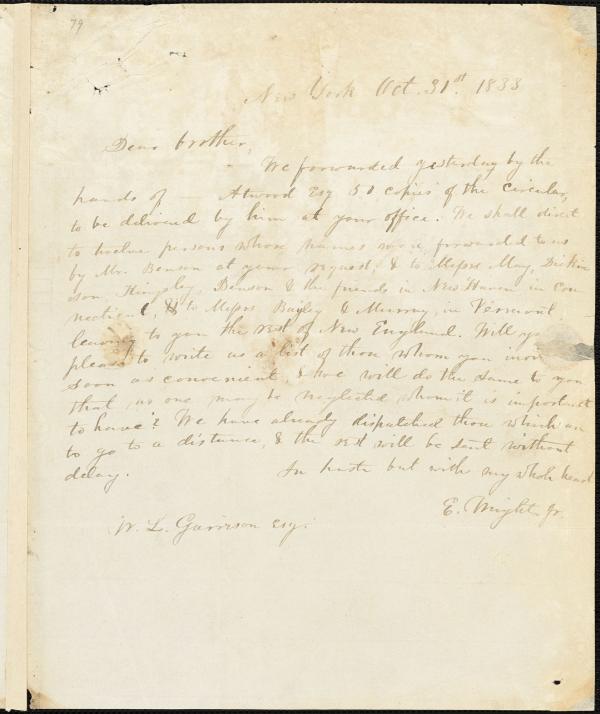 79
New York Oct. 31st. 1833
Dear brother,
We forwarded yesterday by the
hands of — Atwood Esq 50 copies of the Circular,
to be delivered by him at your office. We shall direct
to twelve persons whose names were forwarded to us
by Mr. Benson at your request, & to Messrs May, Dickin
son, Kingsley, Benson & the friends in New Haven in Con
necticut, & to Messrs Bayley & Murray, in Vermont
leaving to you the rest of New England. Will yo
please to write us a list of those whom you
soon as convenient, & we will do the same to you
that no one may be neglected whom it is important
to have? We have already dispatched those which are
to go to a distance, & the rest will be sent without
delay.
In haste but with my whole heart
E. Wright Jr.
W. L. Garrison Esq.